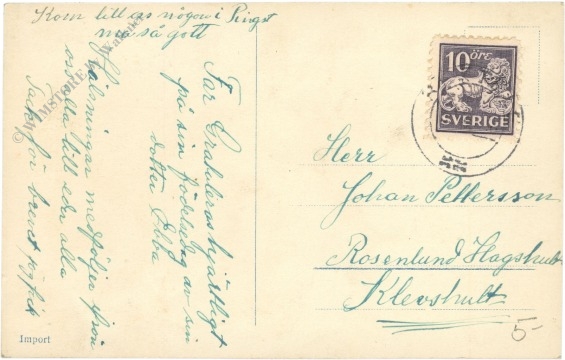 Kom till os någon i Pingst
må så gott
Far Gratuleras hjärtligt
på sin födelsedag av sin
dotter Ebba
Hälsningar medföljer från
oss alla till eder alla
Tack för brevet jag fick
10 ÖRE
SVERIGE
Herr
Johan Pettersson
Rosenlund Hagshult
Klevshult
Import
5-